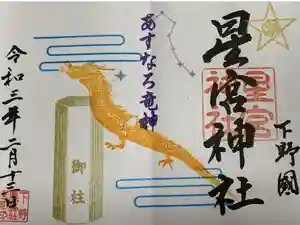 下野國
星宮神社
星宮
神社
あすなろ竜神
御柱
令和三年二月十三日